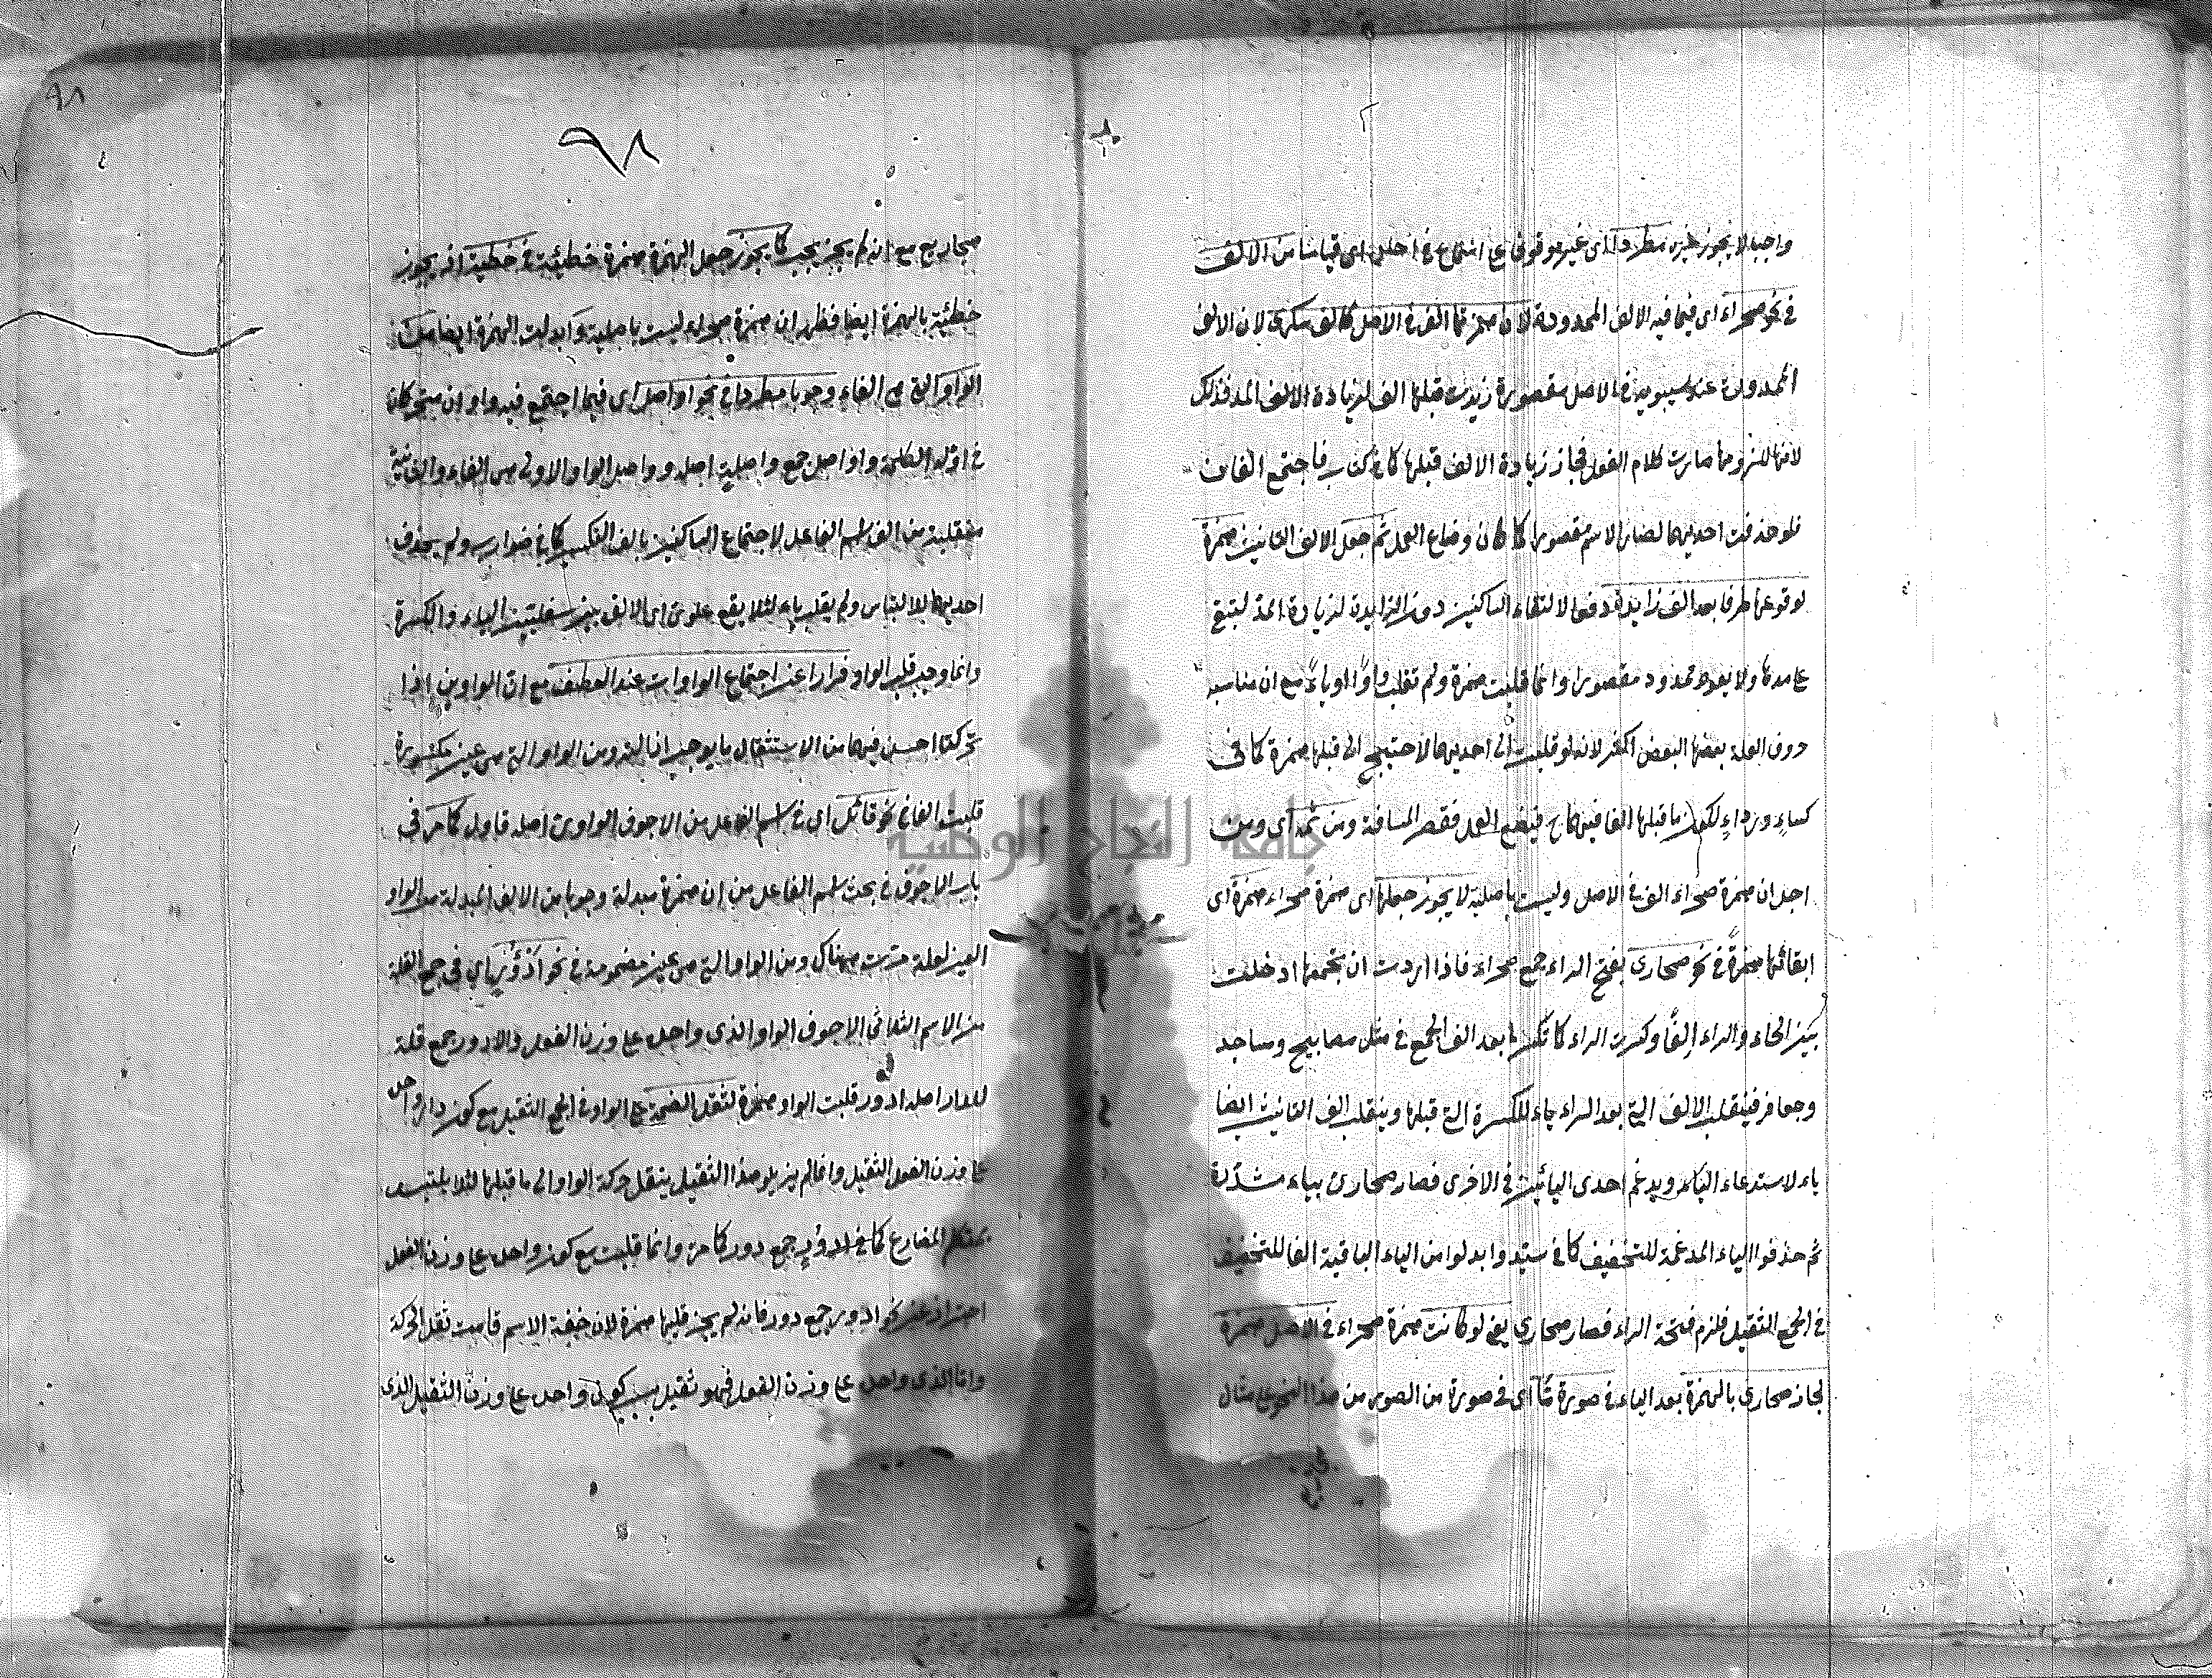 واجبا لا يجوز غيره مطردا اى غير موقوف على استماع فى احدى اى قياسا من الالف
فى نحو صحراء اى فيما فيه الالف الممدودة لان همزتها الف فى الاصل كالف سكرى لان الالف
الممدودة عند سيبويه فى الاصل مقصورة زيدت قبلها الف لزيادة الالف المد فذلك
لانها للزومها صارت كلام الفعل فجاز زيادة الالف قبلها كما فى كتاب فاجتمع الفان
فلو حذفت احديهما لصار الاسم مقصورا كما كان وضاع العمل ثم جعل الالف الثانية همزة
لوقوعها طرفا بعد الف زايدة دفعا لالتقاء الساكنين دون الزايدة لزيادة المد لتبقى
على مدها ولا يعود ممدود مقصورا وانما قلبت همزة ولم تقلب واوا او ياء مع ان مناسبة
حروف العلة بعضها البعض اكثر لانه لو قلبت الى احديهما لاحتيج الى قبلها همزة كما فى
كساء ورداء لكون ما قبلها الفا فيهما ح فيضيع العمل فقصر المسافة ومن ثمه اى ومن
اجل ان همزة صحراء الف فى الاصل وليست باصلية لا يجوز جعلها اى همزة صحراء همزة اى
ابقائها همزة فى نحو صحارى بفتح الراء جمع صحراء فاذا اردت ان تجمعها ادخلت
بين الحاء والراء الفا وكسرت الراء كما تكسر ما بعد الف الجمع فى مثل مصابيح ومساجد
وجعافر فينقلب الالف التى بعد الراء ياء للكسرة التى قبلها وينقلب الف التانيث ايضا
ياء لاستدعاء الياء ويدغم احدى اليائين فى الاخرى فصار صحارى بياء مشددة
ثم حذفوا الياء المدغمة للتخفيف كما فى سيد وابدلوا من الياء الباقية الفا للتخفيف
فى الجمع الثقيل فلزم فتحة الراء فصار صحارى يعنى لو كانت همزة صحراء فى الاصل همزة
لجاز صحارى بالهمزة بعد الياء فى صورة ما اى فى صورة من الصور من هذا النحو على مثال
٩٨
صحاريع مع انه لم يجز يجب كما يجوز جعل الهمزة همزة خطيئة فى خطية اذ يجوز
خطئية بالهمزة ايضا فظهر ان همزة صحراء ليست باصلية وابدلت الهمزة ايضا من
الواو التى هى الفاء وجوبا مطردا فى نحو اواصل اى فيما اجتمع فيه واوان متحركان
فى اول الكلمة واواصل جمع واصلة اصله وواصل الواو الاولى هى الفاء والثانية
منقلبة من الف اسم الفاعل لاجتماع الساكنين بالف التكسير كما فى ضوارب ولم يحذف
احديهما للالتباس ولم يقلب ياء لئلا يقع علوى اى الالف بين سفليتين الياء والكسرة
وانما وجب قلب الواو فرارا عن اجتماع الواوات عند العطف مع ان الواوين اذا
تحركتا احسن فيهما من الاستثقال ما يوجب ازالته ومن الواو التى هى عين مكسورة
قلبت الفا فى نحو قائل اى فى اسم الفاعل من الاجوف الواوى اصله قاول كما مر فى
باب الاجوف فى بحث اسم الفاعل من ان همزة مبدلة وجوبا من الالف المبدلة من الواو
العين لعلة مرت هناك ومن الواو التى هى عين مضمومة فى نحو ادؤر اى فى جمع القلة
من الاسم الثلاثى الاجوف الواو الذى واحده على وزن الفعل والادور جمع قلة
للدار اصله ادور قلبت الواو همزة لثقل الضمة على الواو فى الجمع الثقيل مع كون دار واحد
على وزن الفعل الثقيل وانما لم يزيلو هذا الثقيل بنقل حركة الواو الى ما قبلها لئلا يلتبس
بمتكلم المضارع كما فى ادؤر جمع دور كما مر وانما قلبت مع كون واحد على وزن الفعل
احترازا عن نحو ادور جمع دور فانه لم يجز قلبها همزة لان خفة الاسم قامت ثقل الحركة
واما الذى واحد على وزن الفعل فهو ثقيل بسبب كون واحد على وزن الثقيل الذى
جامعة النجاح الوطنية